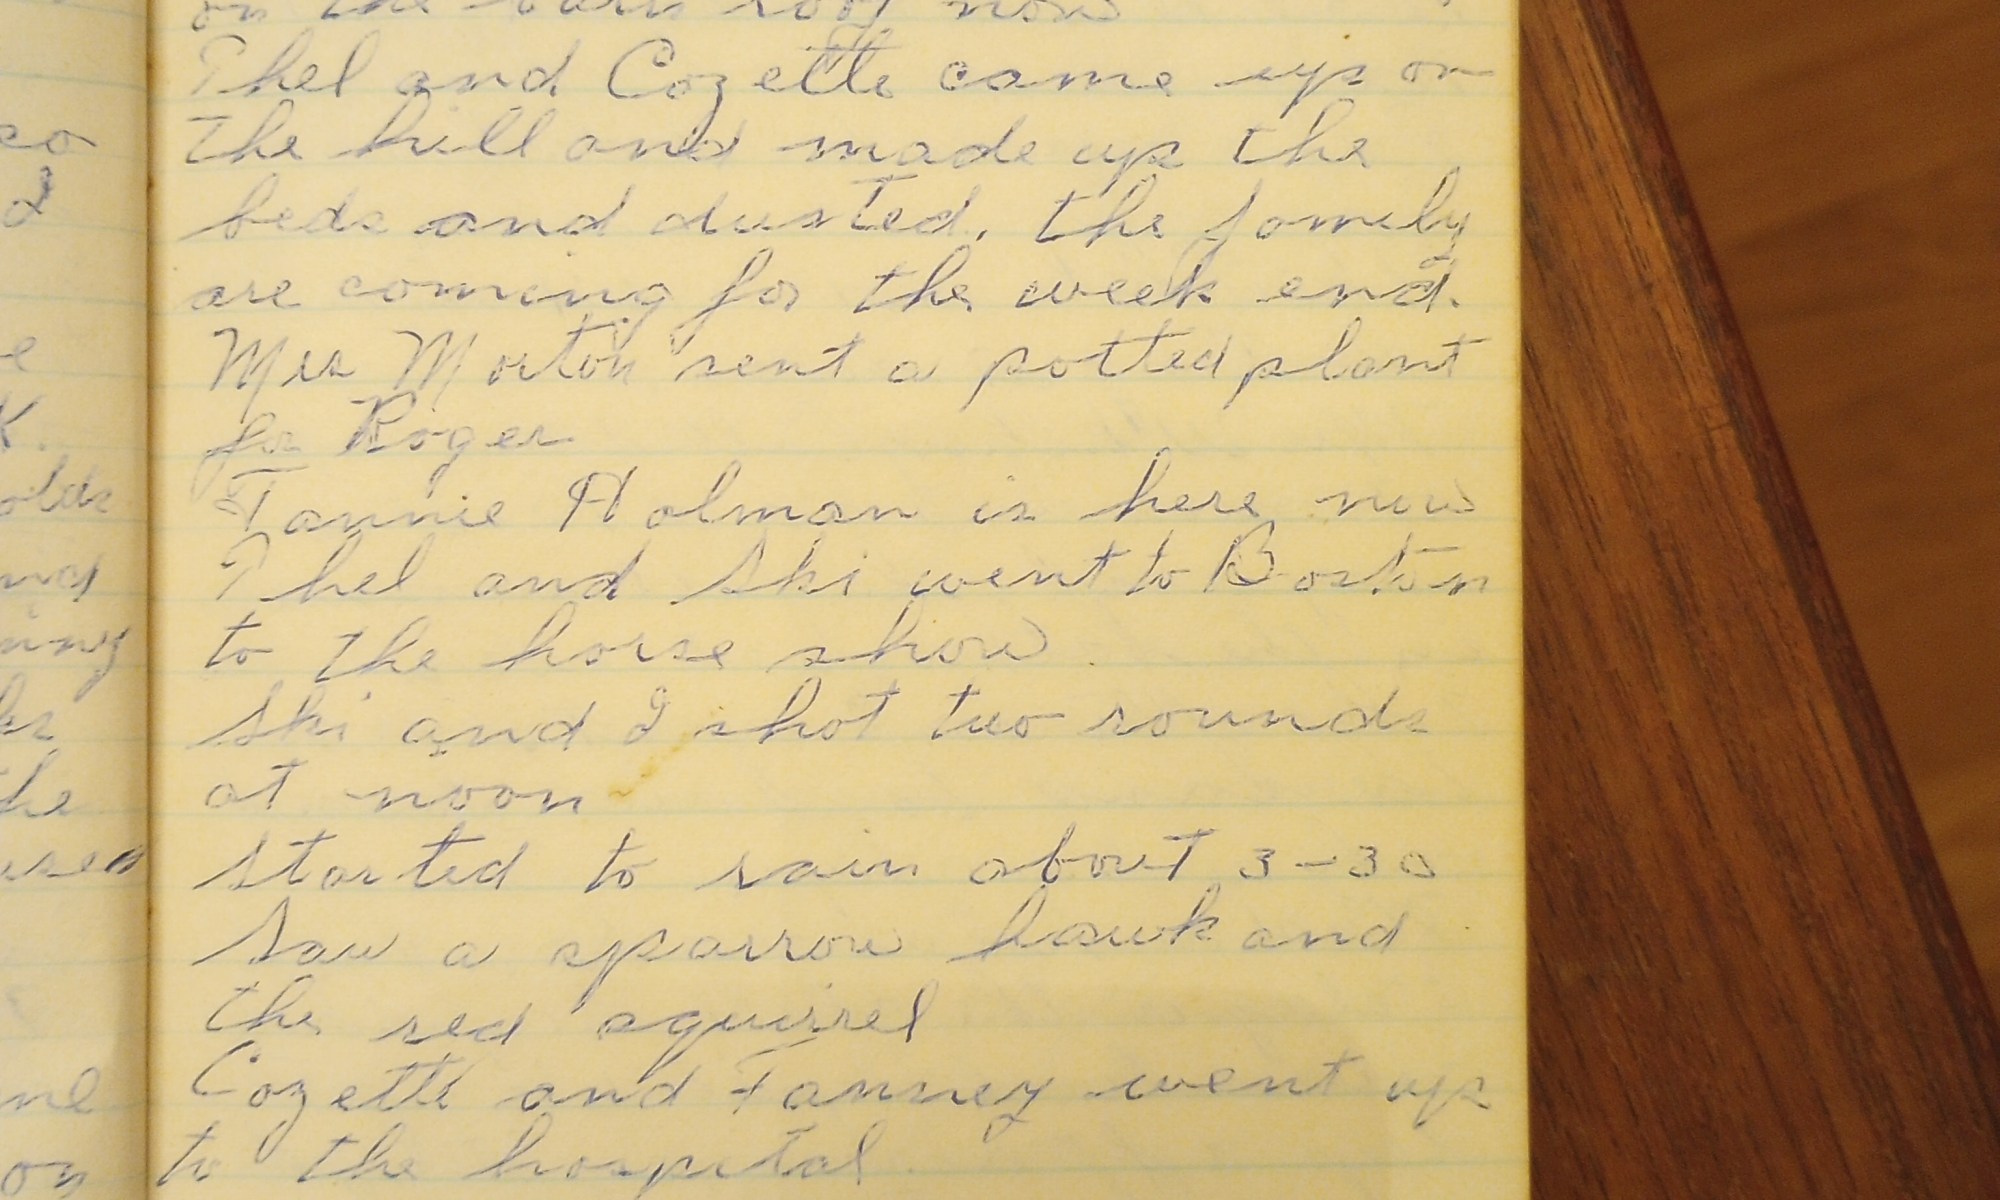 on the barn roof now
Thel and Cozette came up on
the hill and made up the
beds and dusted. the family
are coming for the week end.
Mrs Morton sent a potted plant
for Roger
Fannie Holman is here now
Thel and Ski went to Boston
to the horse show
Ski and I shot two rounds
at noon
started to rain about 3-30
Saw a sparrow hawk and
the red squirrel
Cozette and Fanney went up
to the hospital